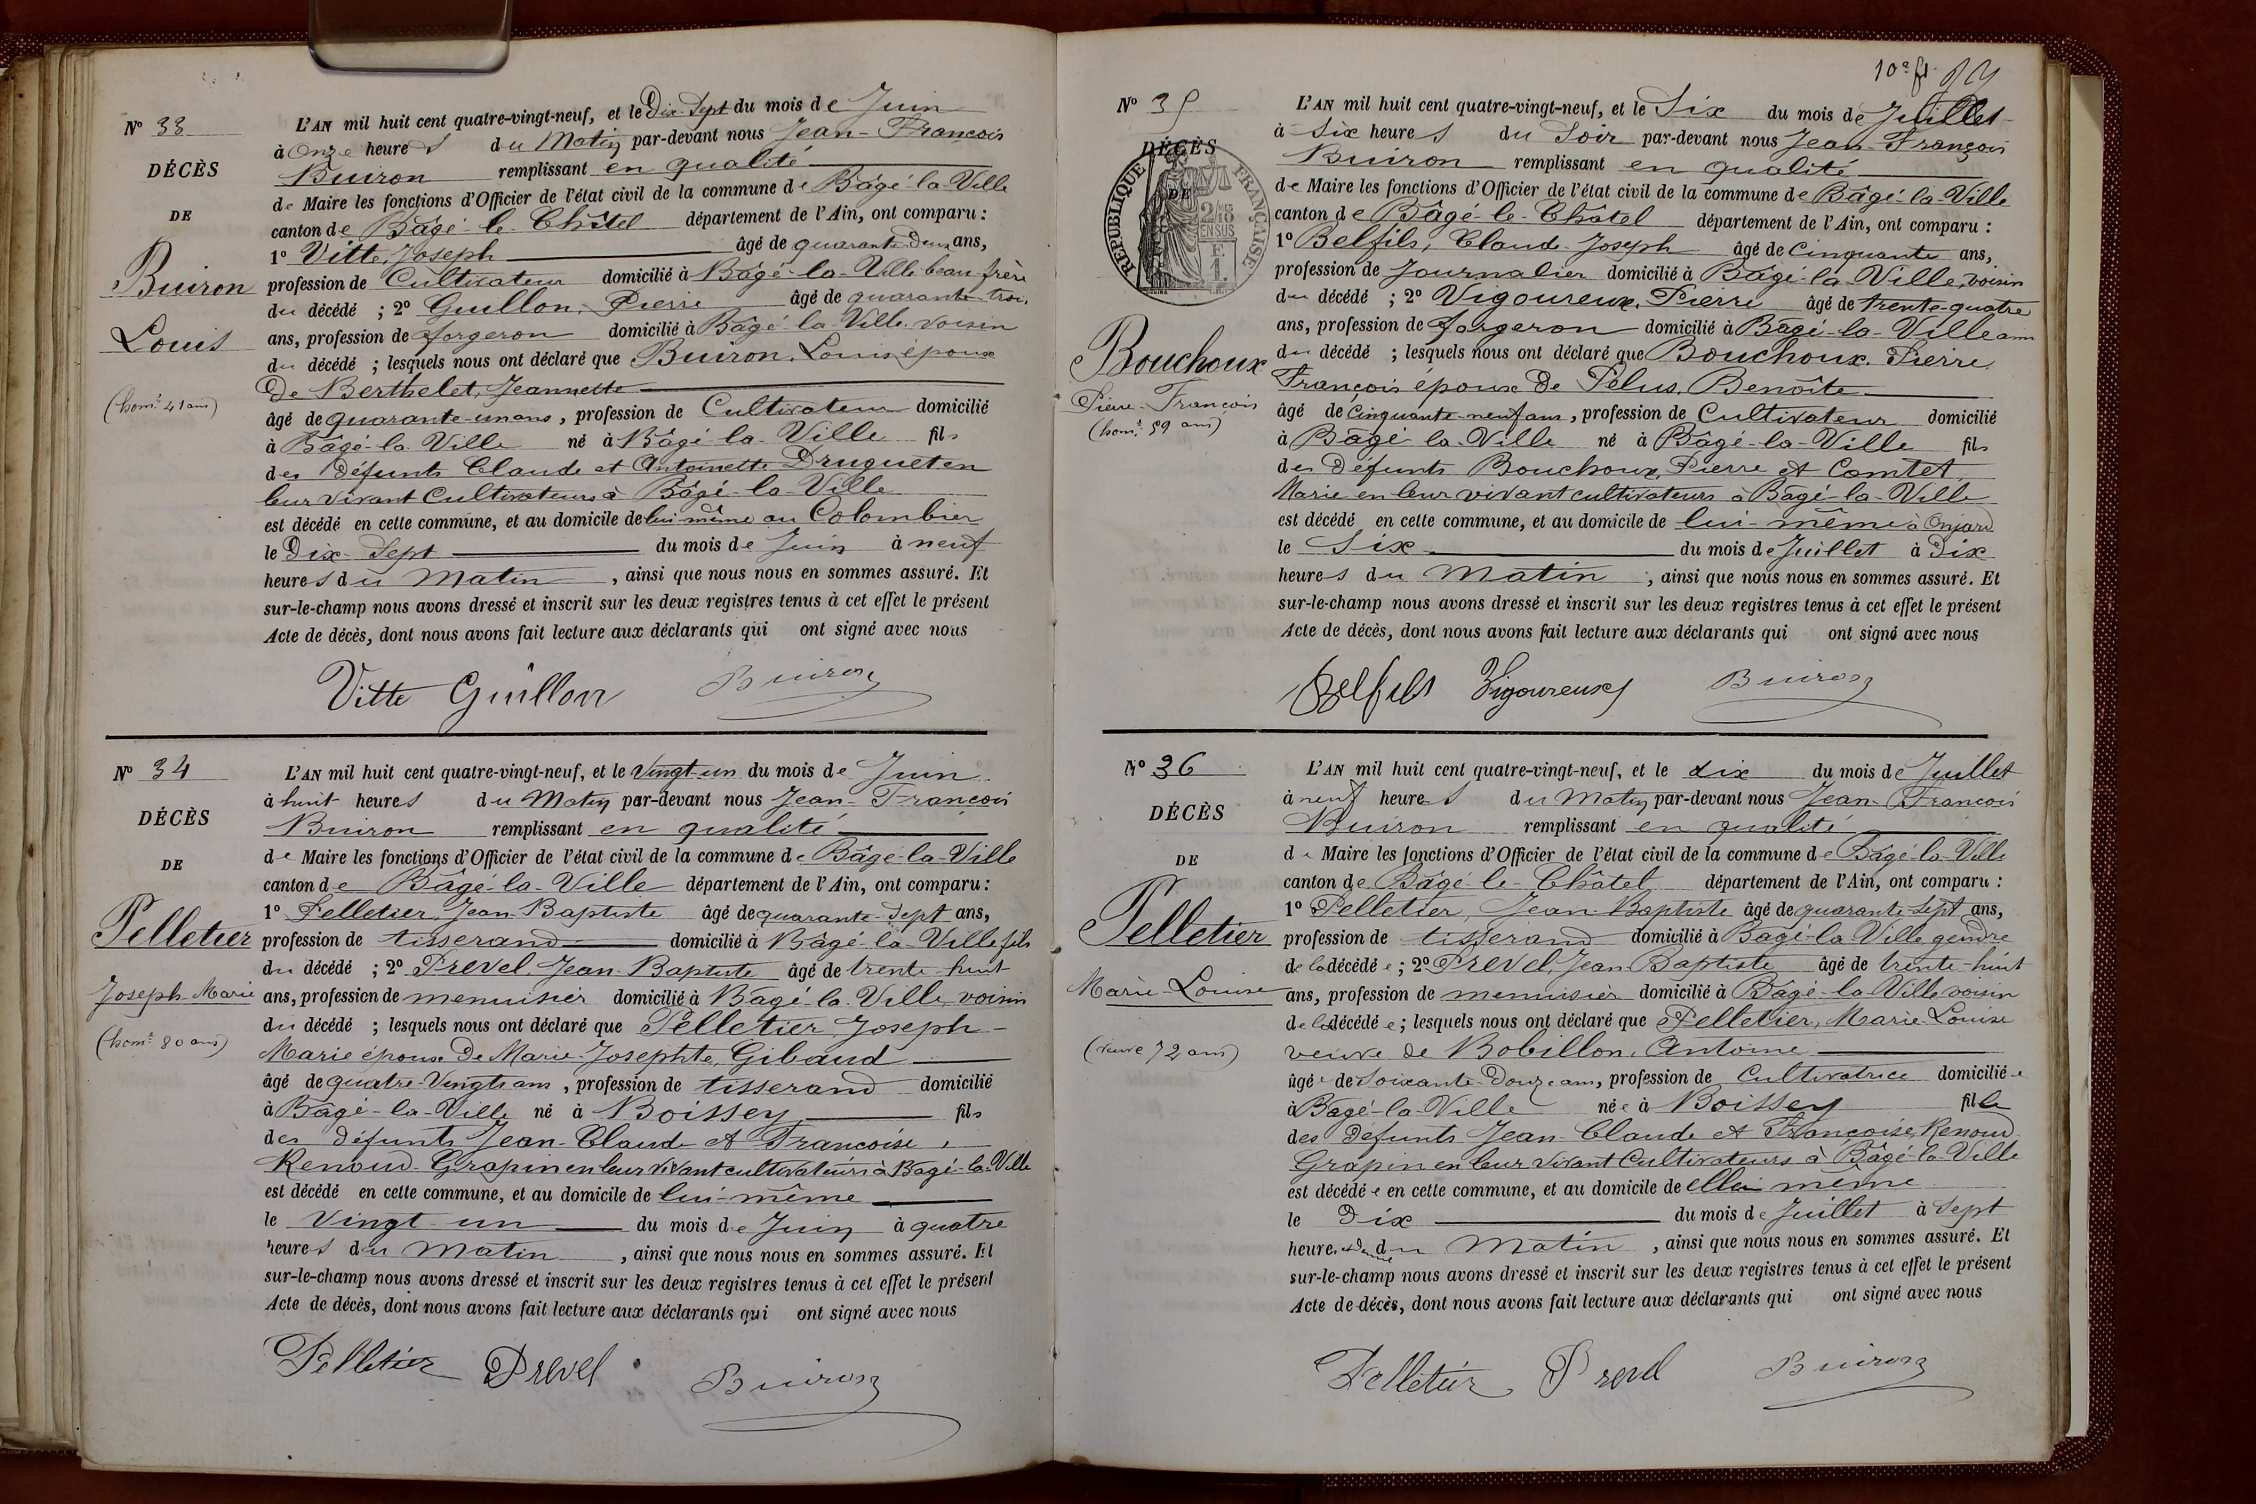 Nº 33
DÉCÈS
DE
Buiron
Louis
(hom.e 41 ans)
L'AN mil huit cent quatre-vingt-neuf, et le Dix-Sept du mois de Juin
à Onze heures du Matin par-devant nous Jean-François
Buiron remplissant en qualité
de Maire les fonctions d'Officier de l'état civil de la commune de Bâgé-la-Ville
canton de Bâgé-le-Châtel département de l'Ain, ont comparu :
1º Vitte, Joseph âgé de quarante-Deux ans,
profession de Cultivateur domicilié à Bâgé-la-Ville beau-frère
du décédé ; 2º Guillon, Pierre âgé de quarante-trois
ans, profession de forgeron domicilié à Bâgé-la-Ville voisin
du décédé ; lesquels nous ont déclaré que Buiron, Louis époux
de Berthelet, Jeannette
âgé de quarante-un ans, profession de Cultivateur domicilié
à Bâgé-la-Ville né à Bâgé-la-Ville fils
des défunts Claude et Antoinette Druguet en
leur vivant Cultivateurs à Bâgé-la-Ville
est décédé en cette commune, et au domicile de lui même au Colombier
le Dix-Sept du mois de Juin à neuf
heures du Matin, ainsi que nous nous en sommes assuré. Et
sur-le-champ nous avons dressé et inscrit sur les deux registres tenus à cet effet le présent
Acte de décès, dont nous avons fait lecture aux déclarants qui ont signé avec nous
Vitte Guillon Buiron
Nº 34
DÉCÈS
DE
Pelletier
Joseph-Marie
(hom.e 80 ans)
L'AN mil huit cent quatre-vingt-neuf, et le Vingt-un du mois de Juin
à huit heures du Matin par-devant nous Jean-François
Buiron remplissant en qualité
de Maire les fonctions d'Officier de l'état civil de la commune de Bâgé-la-Ville
canton de Bâgé-la-Ville département de l'Ain, ont comparu :
1º Pelletier, Jean-Baptiste âgé de quarante-Sept ans,
profession de tisserand domicilié à Bâgé-la-Ville fils
du décédé ; 2º Prevel, Jean-Baptiste âgé de trente-huit
ans, profession de menuisier domicilié à Bâgé-la-Ville, voisin
du décédé ; lesquels nous ont déclaré que Pelletier Joseph-
Marie époux De Marie-Josephte, Giband
âgé de quatre-Vingts ans, profession de tisserand domicilié
à Bâgé-la-Ville né à Boissey fils
des défunts Jean-Claude et Françoise
Renoud-Grapin en leur vivant cultivateurs à Bâgé-la-Ville
est décédé en cette commune, et au domicile de lui-même
le Vingt-un du mois de Juin à quatre
heures du Matin, ainsi que nous nous en sommes assuré. Et
sur-le-champ nous avons dressé et inscrit sur les deux registres tenus à cet effet le présent
Acte de décès, dont nous avons fait lecture aux déclarants qui ont signé avec nous
Pelletier Prevel Buiron
Nº 35
DÉCÈS
DE
RÉPUBLIQUE FRANÇAISE
Bouchoux
Pierre-François
(hom.e 59 ans)
L'AN mil huit cent quatre-vingt-neuf, et le Six du mois de Juillet
à Six heures du Soir par-devant nous Jean-François
Buiron remplissant en qualité
de Maire les fonctions d'Officier de l'état civil de la commune de Bâgé-la-Ville
canton de Bâgé-le-Châtel département de l'Ain, ont comparu :
1º Belfils, Claude-Joseph âgé de Cinquante ans,
profession de Journalier domicilié à Bâgé-la-Ville, voisin
du décédé ; 2º Vigoureux, Pierre âgé de trente-quatre
ans, profession de forgeron domicilié à Bâgé-la-Ville ami
du décédé ; lesquels nous ont déclaré que Bouchoux, Pierre,
François époux de Pélus, Benoîte
âgé de Cinquante-neuf ans, profession de Cultivateur domicilié
à Bâgé-la-Ville né à Bâgé-la-Ville fils
des Défunts Bouchoux, Pierre et Comtet,
Marie en leur vivant cultivateurs à Bâgé-la-Ville
est décédé en cette commune, et au domicile de lui-même à Onjard
le Six du mois de Juillet à Dix
heures du Matin, ainsi que nous nous en sommes assuré. Et
sur-le-champ nous avons dressé et inscrit sur les deux registres tenus à cet effet le présent
Acte de décès, dont nous avons fait lecture aux déclarants qui ont signé avec nous
Belfils Vigoureux Buiron
Nº 36
DÉCÈS
DE
Pelletier
Marie-Louise
(veuve 72 ans)
L'AN mil huit cent quatre-vingt-neuf, et le dix du mois de Juillet
à neuf heures du Matin par-devant nous Jean-François
Buiron remplissant en qualité
de Maire les fonctions d'Officier de l'état civil de la commune de Bâgé-la-Ville
canton de Bâgé-le-Châtel département de l'Ain, ont comparu :
1º Pelletier, Jean-Baptiste âgé de quarante-Sept ans,
profession de tisserand domicilié à Bâgé-la-Ville gendre
de la décédée ; 2º Prevel, Jean-Baptiste âgé de trente-huit
ans, profession de menuisier domicilié à Bâgé-la-Ville voisin
de la décédée ; lesquels nous ont déclaré que Pelletier, Marie-Louise
veuve de Bobillon, Antoine
âgée de Soixante-Douze ans, profession de Cultivatrice domiciliée
à Bâgé-la-Ville née à Boissey fille
des Défunts Jean-Claude et Françoise, Renoud-
Grapin en leur vivant Cultivateurs à Bâgé-la-Ville
est décédée en cette commune, et au domicile de elle même
le Dix du mois de Juillet à Sept
heures et Demie du Matin, ainsi que nous nous en sommes assuré. Et
sur-le-champ nous avons dressé et inscrit sur les deux registres tenus à cet effet le présent
Acte de décès, dont nous avons fait lecture aux déclarants qui ont signé avec nous
Pelletier Prevel Buiron